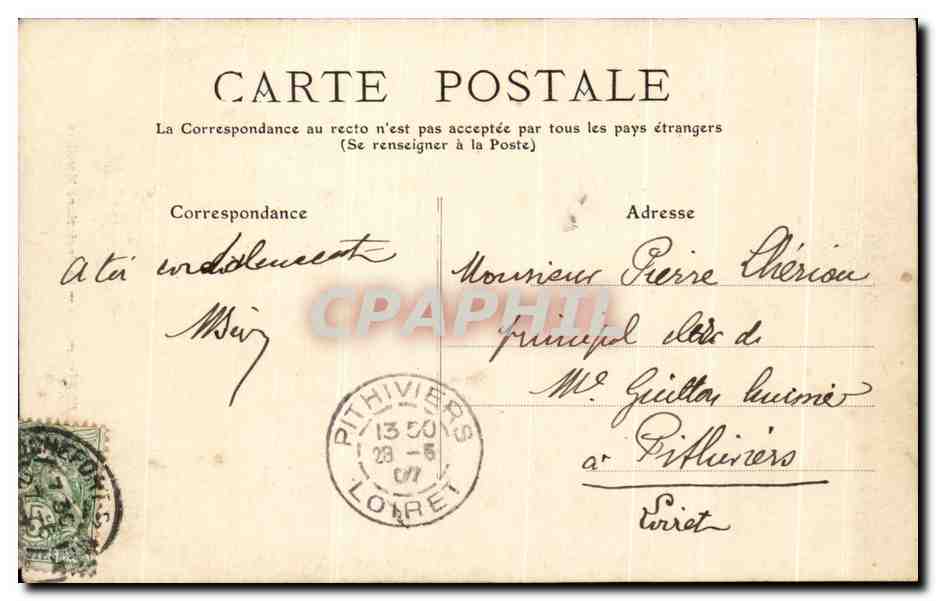 CARTE POSTALE
La Correspondance au recto n'est pas acceptée par tous les pays étrangers
(Se renseigner à la Poste)
Correspondance
a toi cordialement
Adresse
Monsieur Pierre Chériou
principal clerc de
Me Guitton huissier
à Pithiviers
Loiret
CPAPHIL
PITHIVIERS
13 50
28 -5
07
LOIRET